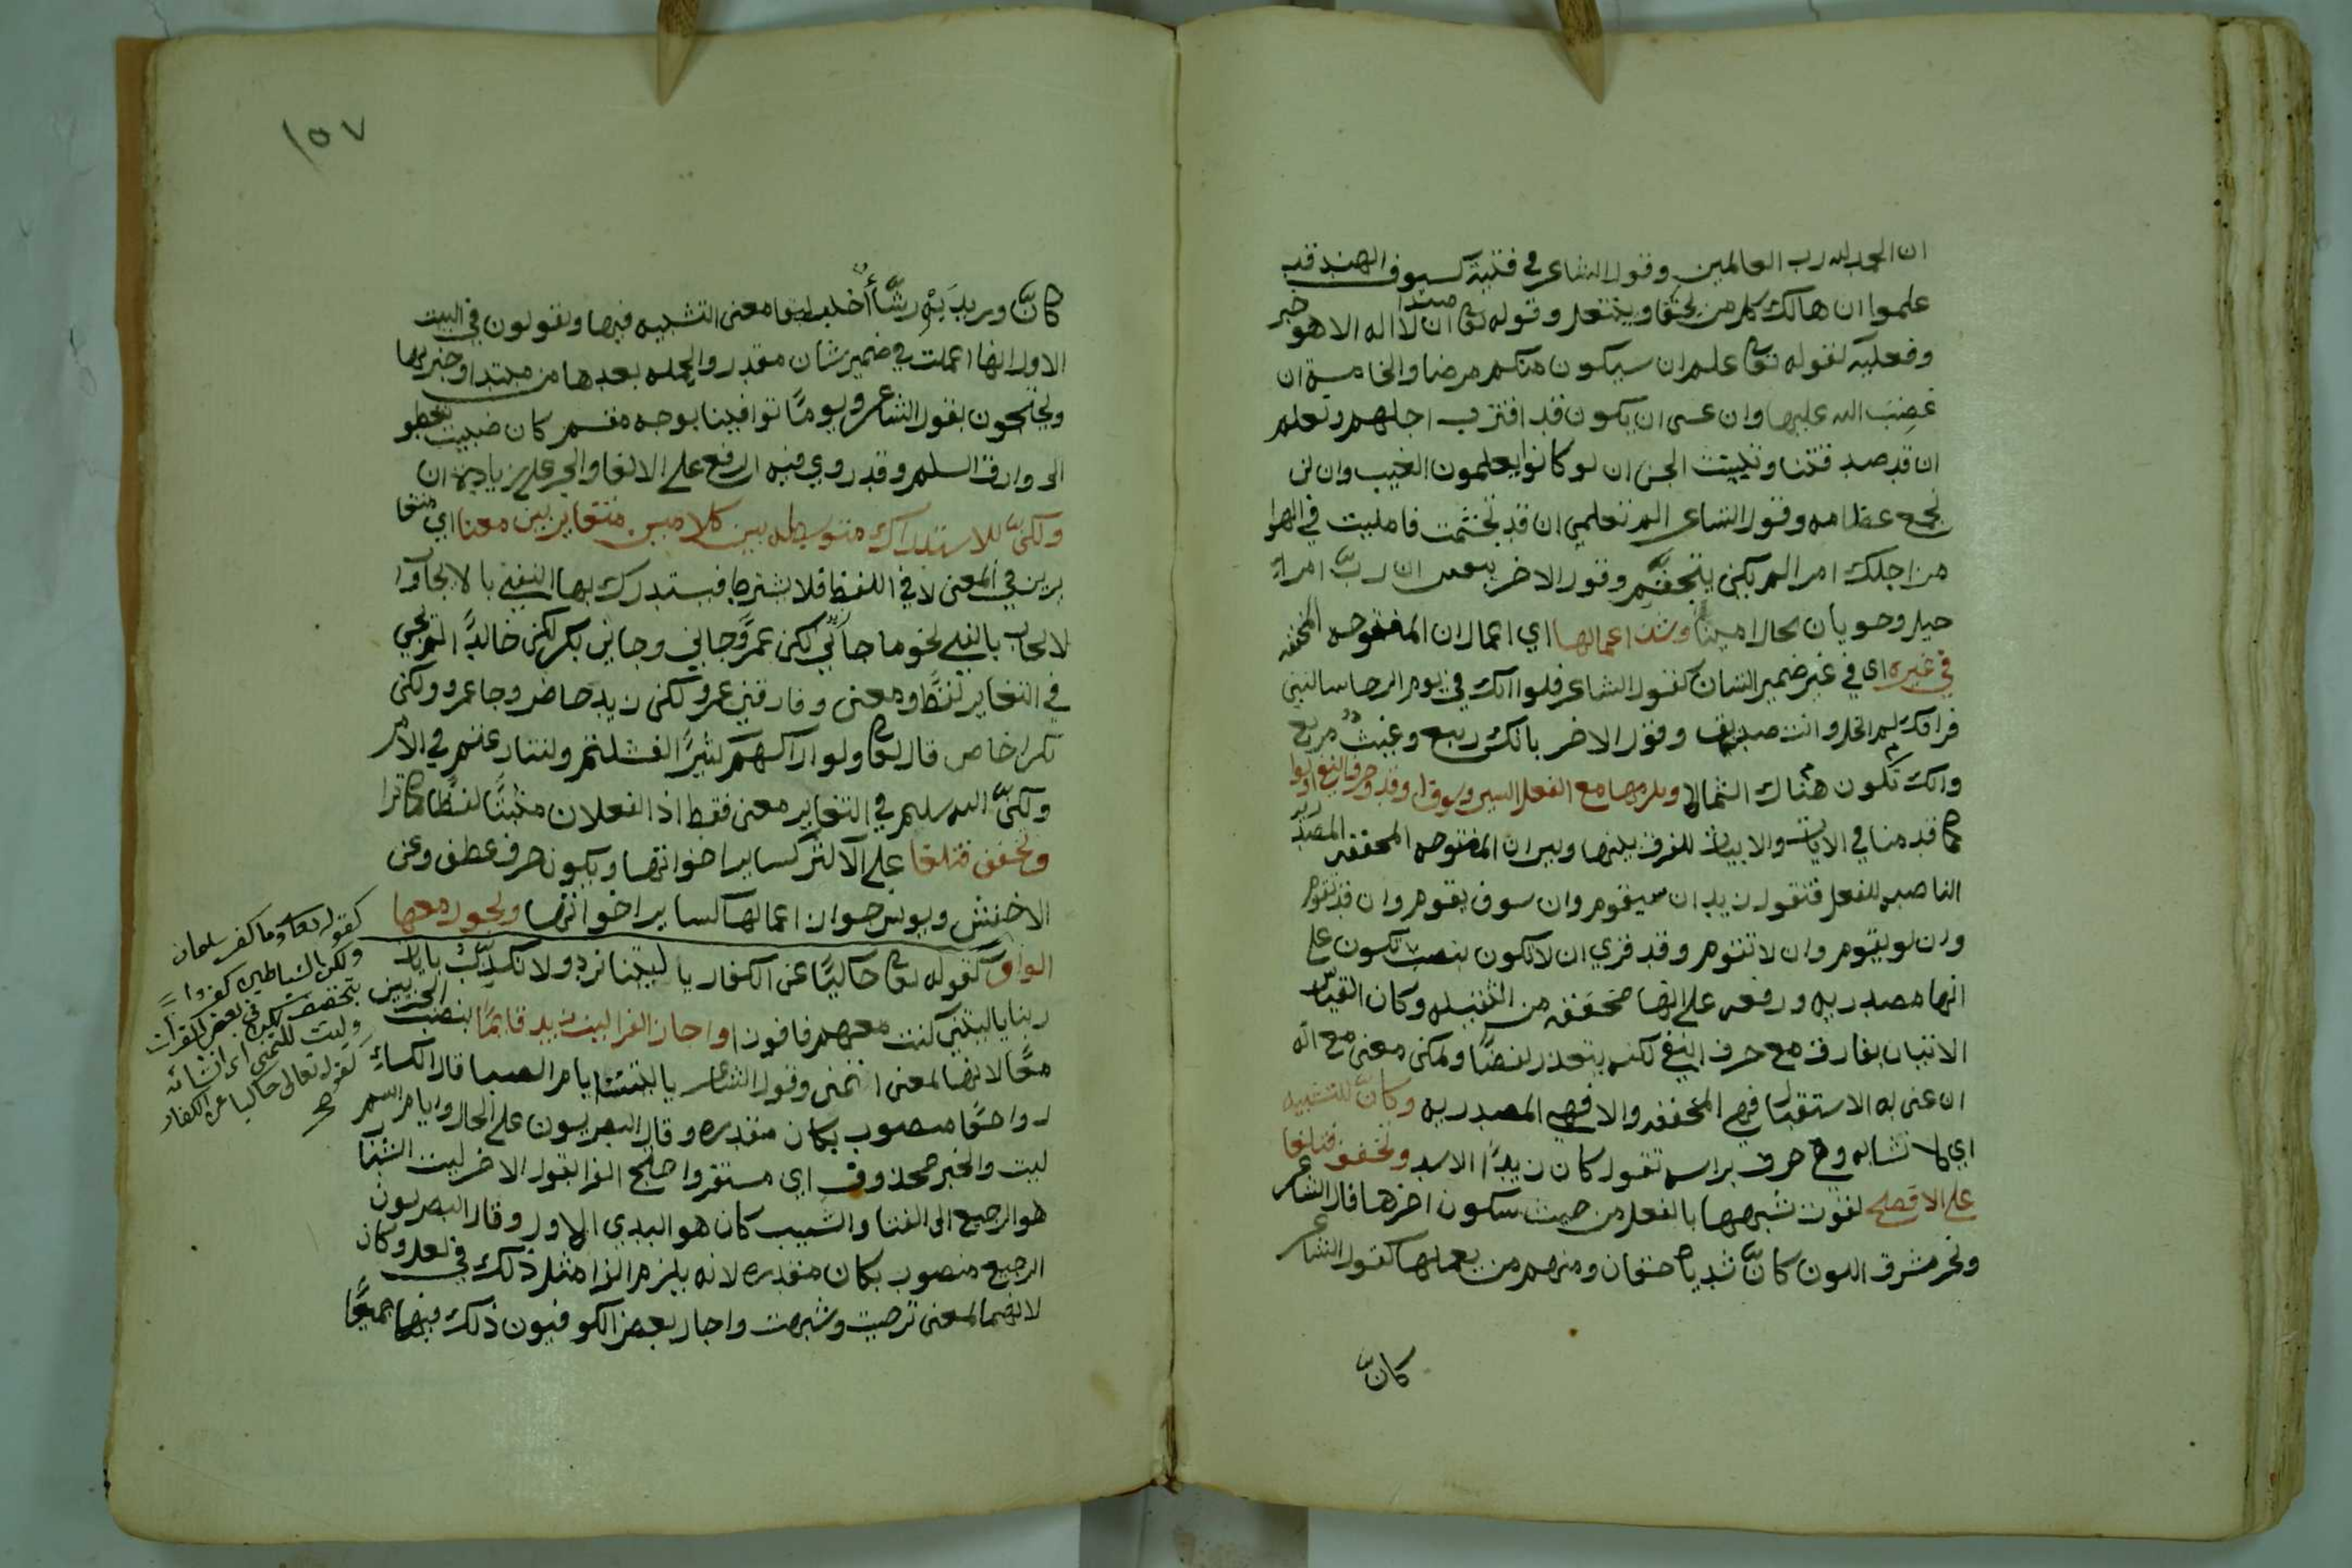 ان الحمد لله رب العالمين وقول الشاعر في فتية كسيوف الهند قد
علموا ان هالك كل من يحفا وينتعل وقوله تعا ان لا اله الا هو
مبتدا خبر
وفعليه لقوله تعا علم ان سيكون منكم مرضا والخامسة ان
غضِبَ الله عليها وان عسى ان يكون قد اقترب اجلهم ونعلم
ان قد صدقتنا وتبينت الجن ان لو كانوا يعلمون الغيب وان لن
نجمع عظامه وقول الشاعر الم تعلمي ان قد تجشمت في الهوا
من اجلك امرا لم يكن يتجشم وقول الاخر ان رب امرء
حيل وحو يان بحال امينا وشذ اعمالها اي اعمال ان المفتوحه المخففه
في غيره اي في غير ضمير الشان كقول الشاعر فلو انك في يوم الرخا سالتني
فراقك لم ابخل وانت صديق وقول الاخر بانك ربيع وغيث مريع
وانك تكون هناك الثمالا ويلزمها مع الفعل السين وسوف او قد وحرف النفي او لو
كما قدمنا في الايات والابيات للفرق بينها وبين ان المفتوحه المخففه المصدريه
الناصبه للفعل فتقول زيد ان سيقوم وان سوف يقوم وان قد يقوم
وان لو يقوم وان لا تقوم وقد قري ان لا تكون بنصب تكون على
انها مصدريه ورفعه على انها مخففه من الثقيله وكان القياس
الاتيان بفارق مع حرف النفي لكنه يتعذر لفضًا ولكن معنى مع انه
ان عنى به الاستقبال فهي المخففه والا فهي المصدريه وكانّ للتشبيه
اي لانشايه وهي حرف براسه تقول كان زيدًا الاسد وتخفف فتلغا
على الافصح لفوت شبهها بالفعل من حيث سكون اخرها قال الشاعر
ونحر مشرق اللون كانّ ثدياه حقان ومنهم من يعملها كقول الشاعر
كانّ
١٥٧
كانّ وريدَيْهِ رشّاأُ خلب معنى التشبيه فيها وتقولون في البيت
الاول انها اعملت في ضمير شان مقدر والجمله بعدها من مبتدا وخبر
ويحتجون بقول الشاعر ويومًا توافينا بوجه مقسم كان ضبيت تعطو
الى وارق السلم وقد روي فيه الرفع على الالغا والجر على زيادة ان
ولكنّ للاستدراك متوسطه بين كلامين متغايرين معنا اي متغا
يرين في المعنى لا في اللفظ فلا يشترط فيستدرك بها النفي بالايجاب وا
لايجاب بالنفي نحو ما جاني لكن عمرًوجاني وجاني بكر لكن خالدًا لم يجي
في التغاير لفظًا ومعنى وفارقني عمرو لكن زيد حاضر وجا عمرو ولكن
بكرا خاص قال تعا ولو اراكهم كثيرًا لفشلتم ولتنازعتم في الامر
ولكنّ الله سلم في التغاير معنى فقط اذ الفعلان مثبتًا لفظًا كما ترا
وتخفف فتلغا على الاكثر كساير اخواتها ويكون حرف عطف وعن
الاخفش ويونس جواز اعمالها كساير اخواتها ويجوز معها
الواو كقوله تعا حاكيًا عن الكفار يا ليتنا نرد ولا نكذّبُ بايات
ربنا يا ليتني كنت معهم فافوز واجاز الفرا ليت زيد قايمًا بنصب الجزيين
معًا لانها لمعنى اتمنى وقول الشاعر يا ليت ايام الصبا قال الكساءي
رواجعًا منصوب بكان مقدره وقال البصريون على الحال وايام اسم
ليت والخبر محذوف اي مستقر واحتج الفرا بقول الاخر ليت الشباب
هو الرجيع الى الفتا والشيب كان هو البدي الاول وقال البصريون
الرجيع منصوب بكان مقدره لانه يلزم الفرا مثل ذلك في لعل وكان
لانهما لمعنى ترجيت وشبهت واجاز بعض الكوفيون ذلك فيها جميعًا
كقوله تعا وما كفر سليمان
ولكن الشياطين كفروا
بتخفيف لكن في بعض القرات
وليت للتمني اي انشائه
كقوله تعالى حاكيا عن الكفار
صح